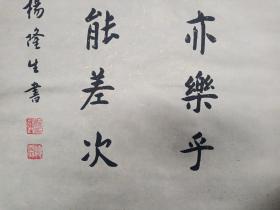 亦樂乎
能差次
楊隆生書